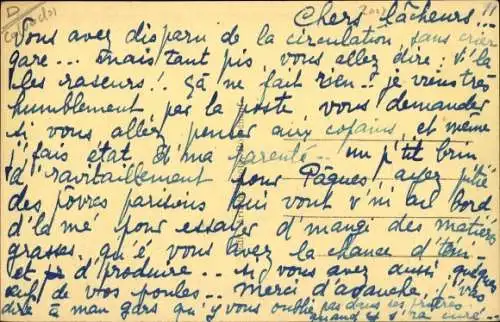 Chers lâcheurs...
Vous avez disparu de la circulation sans crier
gare... mais tant pis, vous allez dire: v'là
les raseurs!. çà ne fait rien.. je viens très
humblement par la poste vous demander
si vous allez penser aux copains, et même
j'fais état d'ma parenté.. un p'tit brin
d'ravitaillement pour Pâques, ayez pitié
des povres parisiens qui vont v'ni au bord
d'la mé pour essayer d'mangé des matières
grasses, qu'é vous avez la chance d'teni-
et d'produire... si vous avez aussi quéques
œufs de vos poules.. merci d'avanche. J'vas
dire à mon gars qu'y vous oublie pas dans ses prières
quand y s'ra curé..